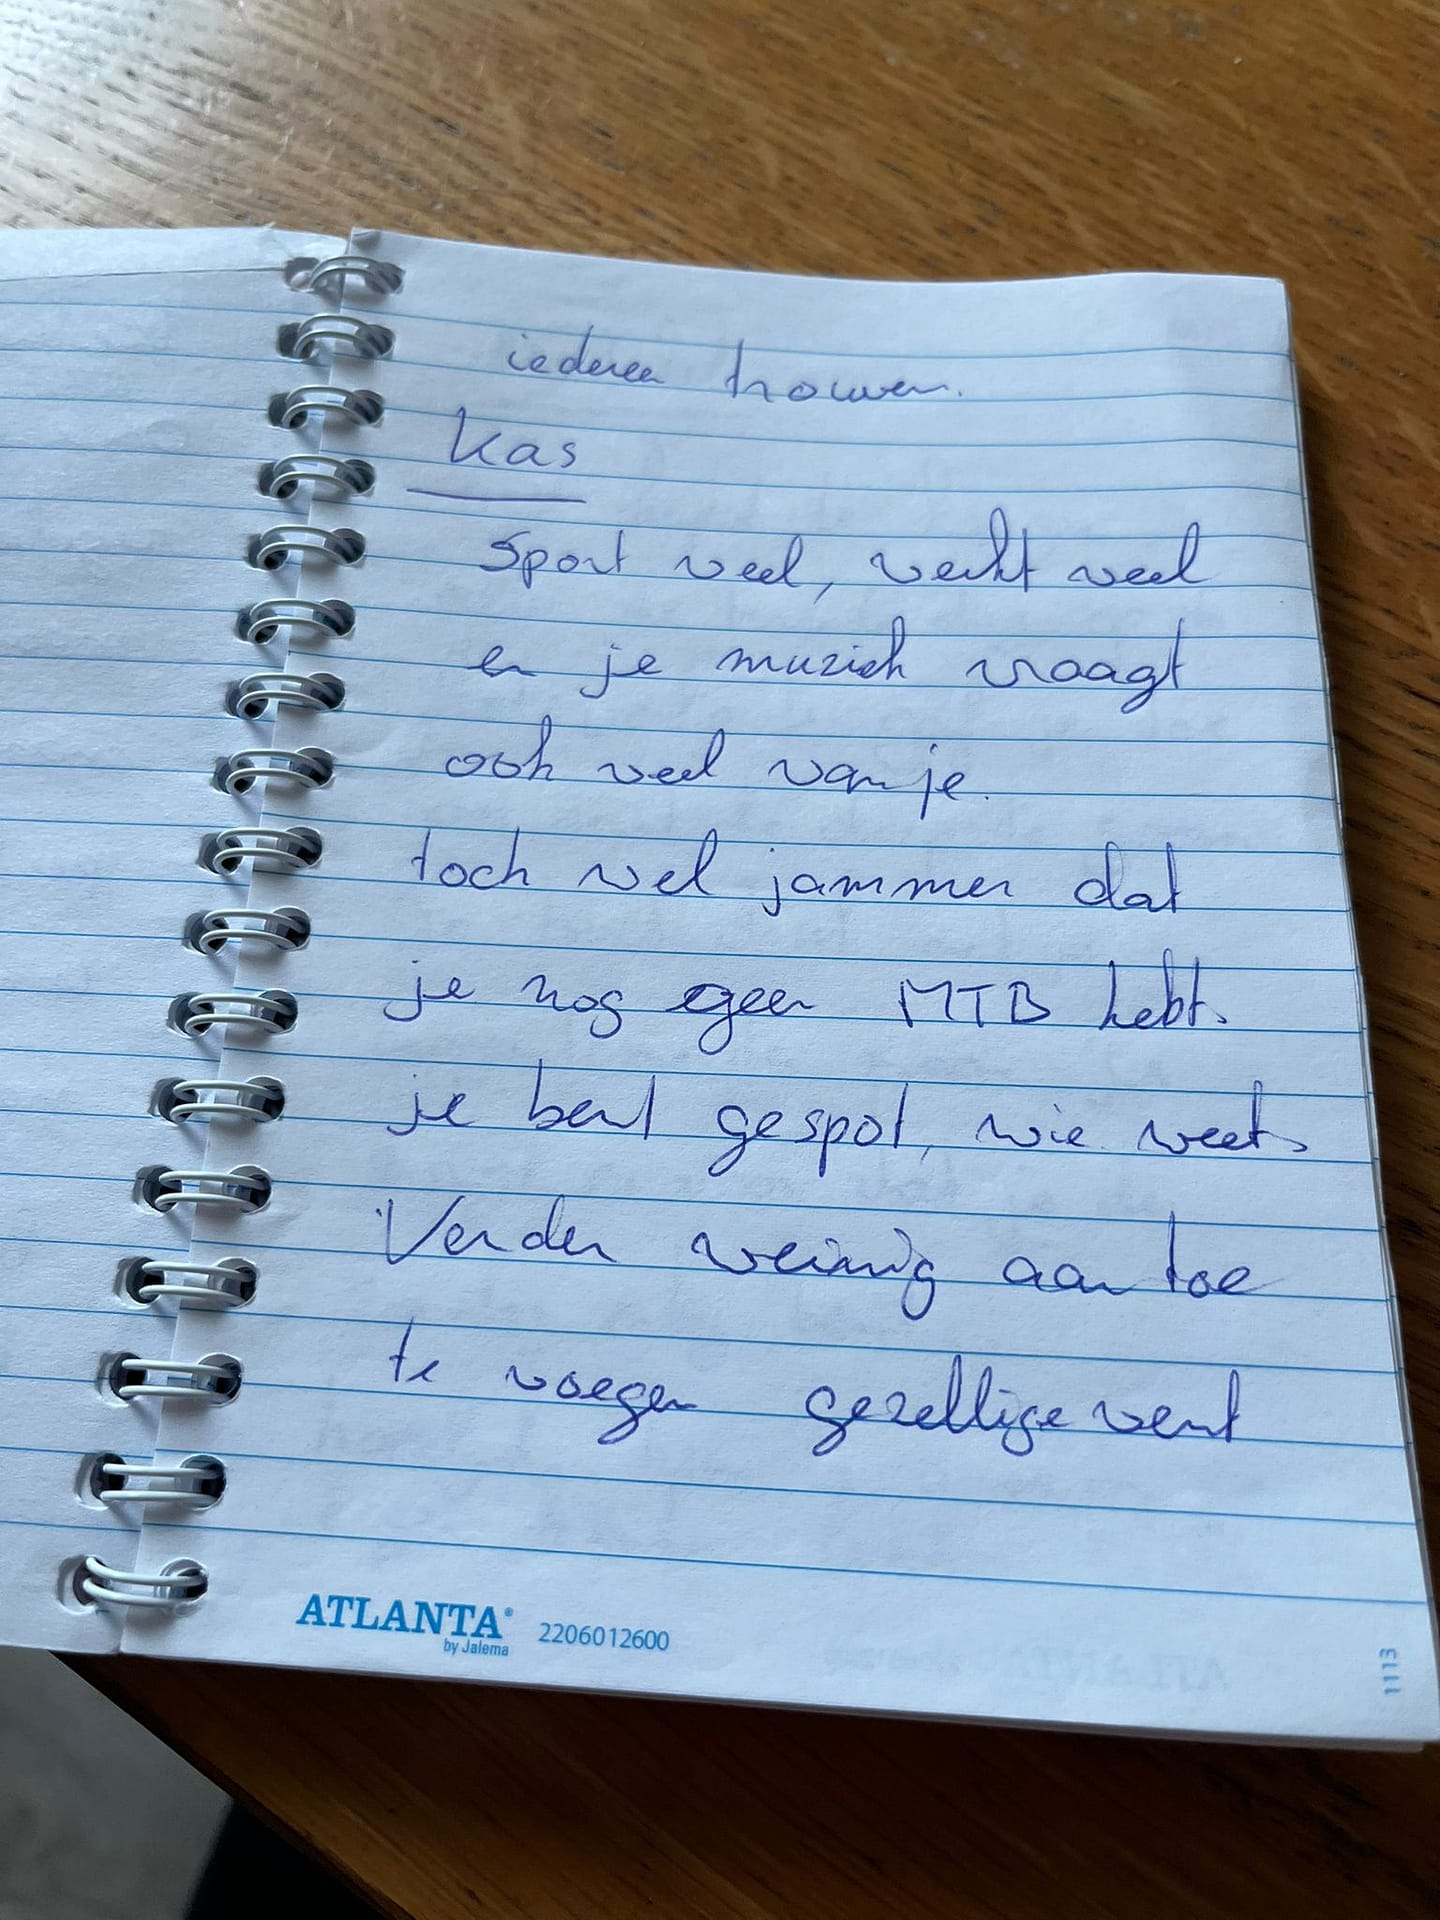 iedereen trouwen.
Kas
Sport veel, werkt veel
en je muziek vraagt
ook veel van je.
toch wel jammer dat
je nog geen MTB hebt.
je bent gespot, wie weet.
Verder weinig aan toe
te voegen gezellige vent
ATLANTA®
by Jalema
2206012600
1113